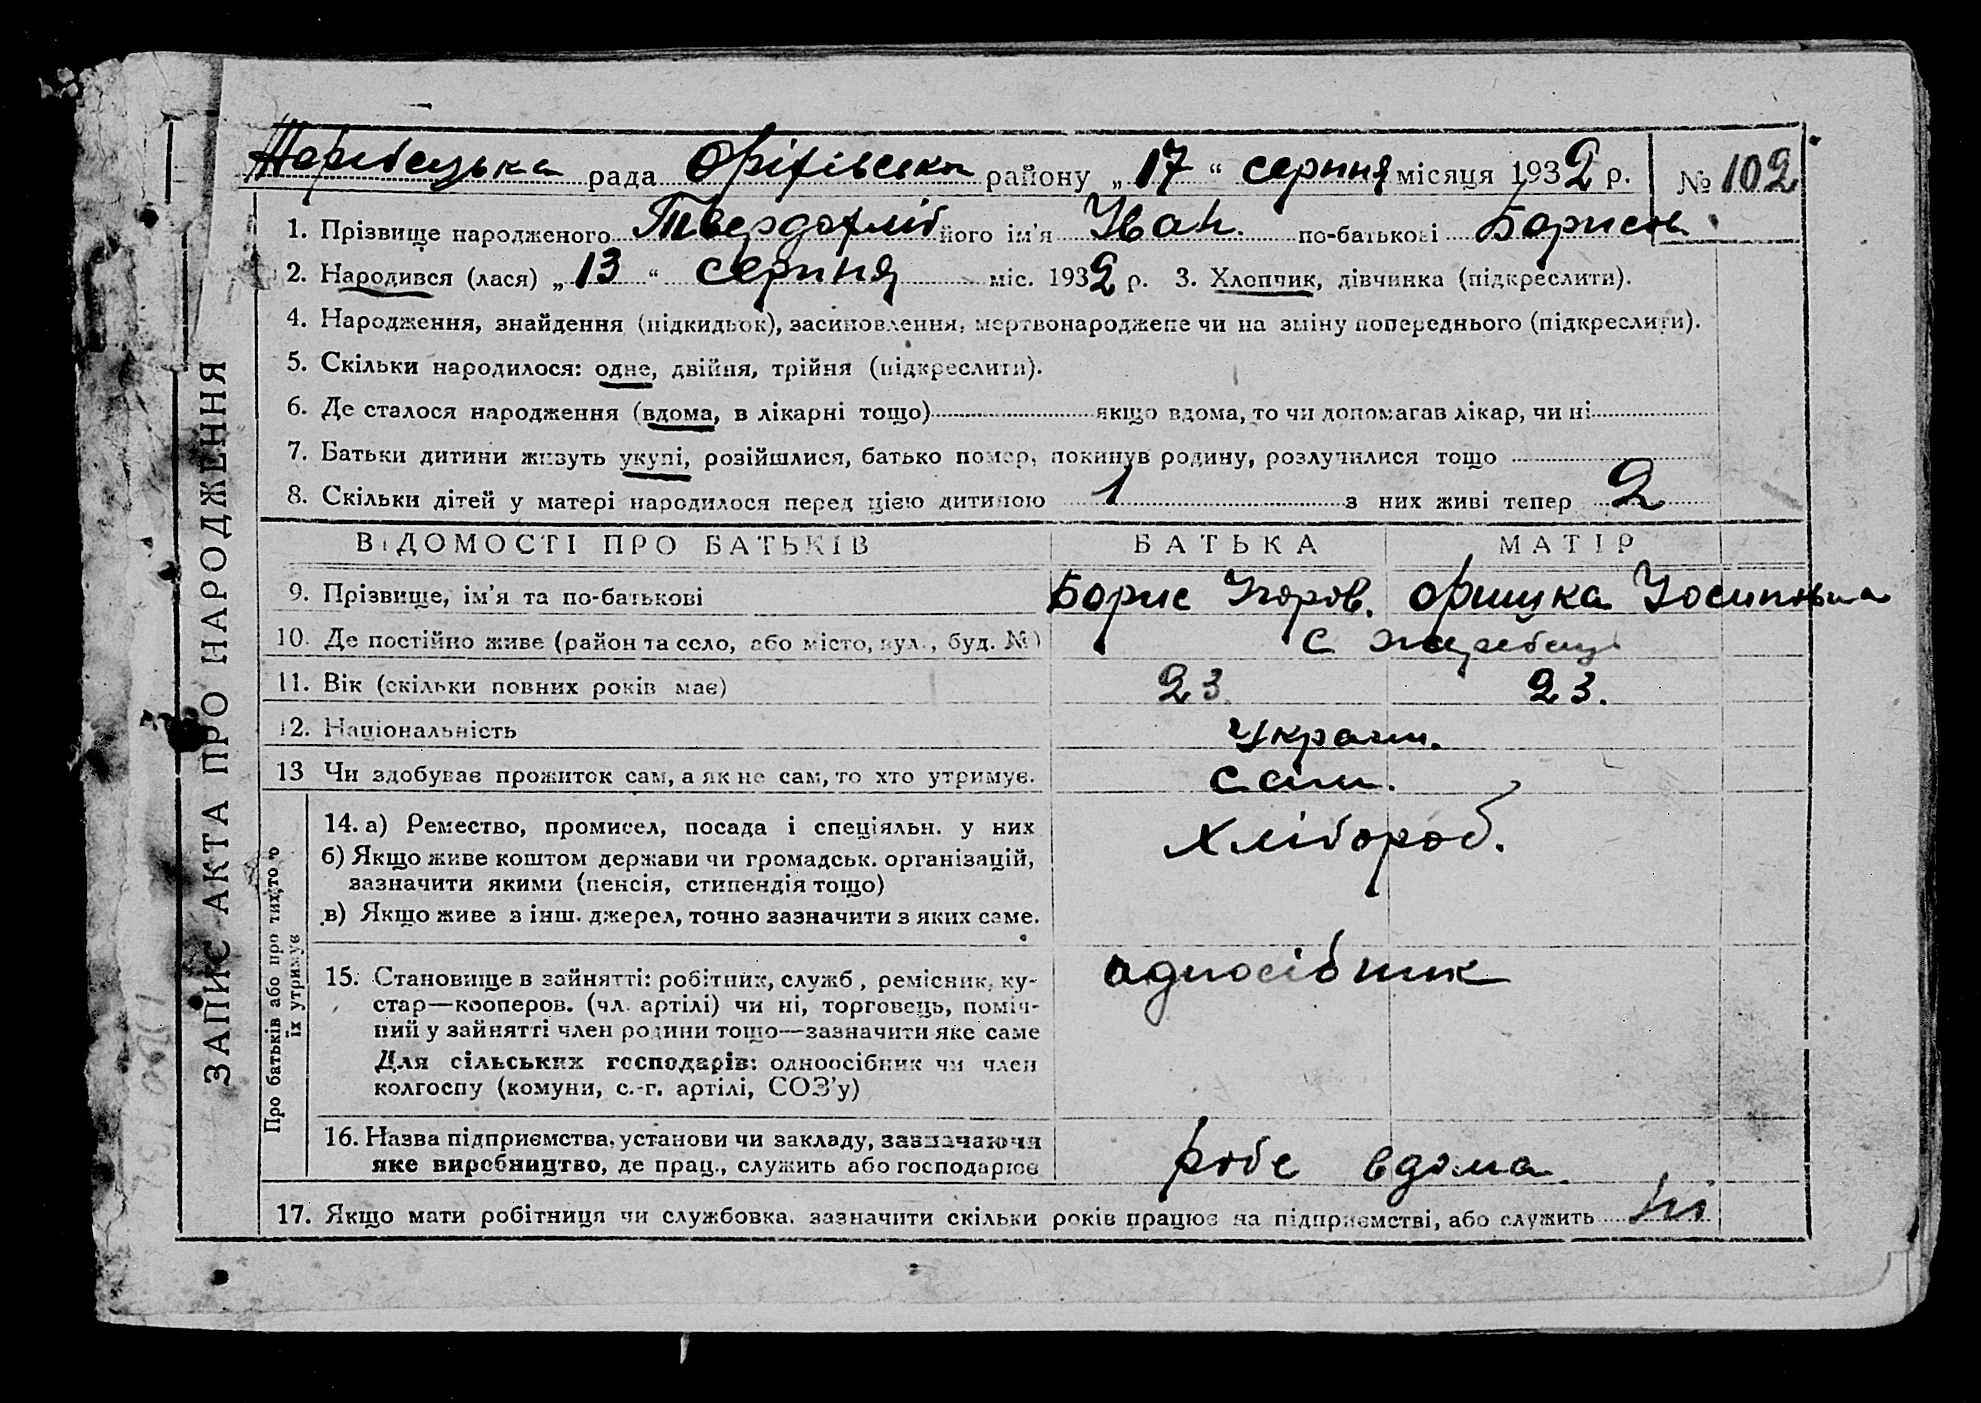 Жеребецька рада Оріхівська району „17“ серпня місяця 1932 р. № 102
1. Прізвище народженого Твердохліб його ім'я Іван по-батькові Борисов
2. Народився (лася) „13“ серпня міс. 1932 р. 3. Хлопчик, дівчинка (підкреслити).
4. Народження, знайдення (підкидьок), засиновлення, мертвонароджене чи на зміну попереднього (підкреслити).
5. Скільки народилося: одне, двійня, трійня (підкреслити).
6. Де сталося народження (вдома, в лікарні тощо) якщо вдома, то чи допомагав лікар, чи ні
7. Батьки дитини живуть укупі, розійшлися, батько помер, покинув родину, розлучилися тощо
8. Скільки дітей у матері народилося перед цією дитиною 1 з них живі тепер 2
ВІДОМОСТІ ПРО БАТЬКІВ БАТЬКА МАТІР
9. Прізвище, ім'я та по-батькові Борис Егоров. Оришка Йосиповна
10. Де постійно живе (район та село, або місто, вул., буд. №) с Жеребець
11. Вік (скільки повних років має) 23 23.
12. Національність Украин.
13 Чи здобував прожиток сам, а як не сам, то хто утримує. Сам.
14. а) Ремество, промисел, посада і спеціяльн. у них Хлібороб.
б) Якщо живе коштом держави чи громадськ. організацій,
зазначити якими (пенсія, стипендія тощо)
в) Якщо живе з інш. джерел, точно зазначити з яких саме.
15. Становище в зайнятті: робітник, служб, ремісник, ку- односібник
стар—кооперов. (чл. артілі) чи ні, торговець, поміч-
ний у зайнятті член родини тощо—зазначити яке саме
Для сільських господарів: одноосібник чи член
колгоспу (комуни, с.-г. артілі, СОЗ'у)
16. Назва підприємства, установи чи закладу, зазначаючи
яке виробництво, де прац., служить або господарює робе вдома
17. Якщо мати робітниця чи службовка, зазначити скільки років працює на підприємстві, або служить ні
Про батьків або про тих, то
їх утримує
ЗАПИС АКТА ПРО НАРОДЖЕННЯ